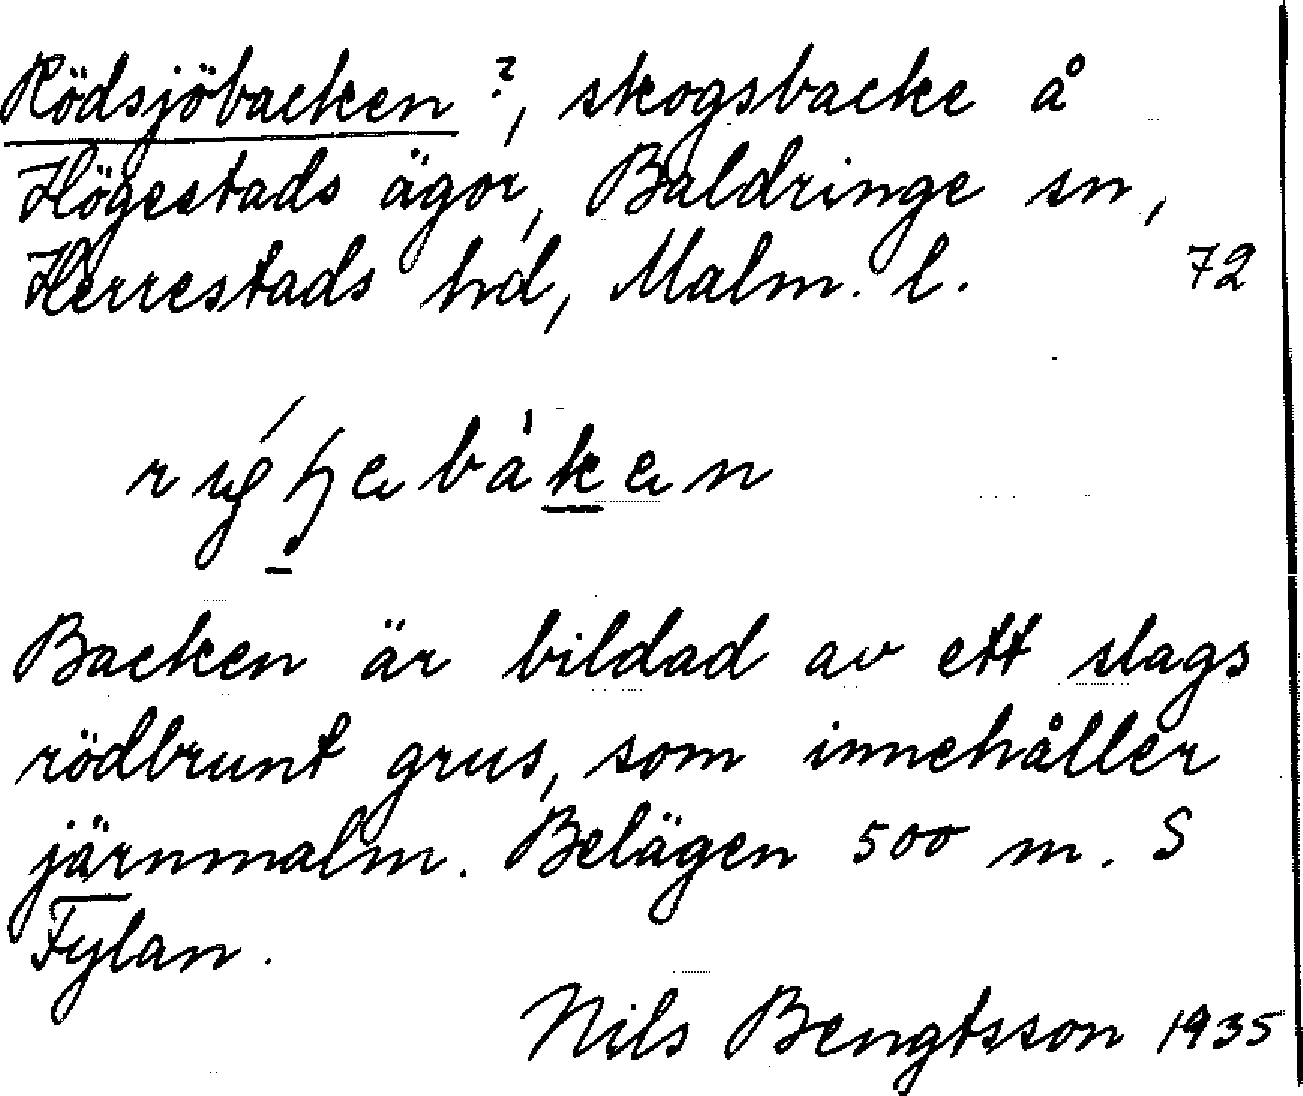 Rödsjöbacken?, skogsbacke å
Högestads ägor, Baldringe sn,
Herrestads hd, Malm. l. 72
Backen är bildad av ett slags
rödbrunt grus, som innehåller
järnmalm. Belägen 500 m. S
Fylan.
Nils Bengtsson 1935